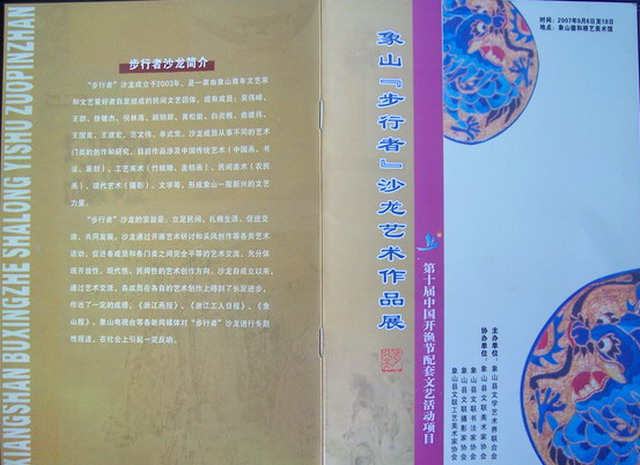 XIANGSHAN BUXINGZHE SHALONG YISHU ZUOPINZHAN
步行者沙龙简介
“步行者”沙龙成立于2003年，是一家由象山青年文艺家
和文艺爱好者自发组成的民间文艺团体，现有成员：吴伟峰、
术创作和研究，目前作品涉及中国传统艺术（中国画、书
法、篆刻）、工艺美术（竹根雕、麦秸画）、民间美术（农民
画）、现代艺术（摄影）、文学等，形成象山一股新兴的文艺
力量。
“步行者”沙龙的宗旨是：立足民间、扎根生活、促进交
流、共同发展。沙龙通过开展艺术研讨和采风创作等各类艺术
活动，促进各成员和各门类之间完全平等的艺术交流，充分体
现开放性、现代性、民间性的艺术创作方向。沙龙自成立以来，
通过艺术交流，各成员在各自的艺术创作上得到了长足进步，
作出了一定的成绩。《浙江画报》、《浙江工人日报》、《象
山报》、象山电视台等各新闻媒体对“步行者”沙龙进行专题
性报道，在社会上引起一定反响。
象山『步行者』沙龙艺术作品展
第十届中国开渔节配套文艺活动项目
时间：2007年9月6日至18日
地点：象山德和根艺美术馆
主办单位：象山县文学艺术界联合会
协办单位：象山县文联美术家协会
象山县文联书法家协会
象山县文联摄影家协会
象山县文联工艺美术家协会